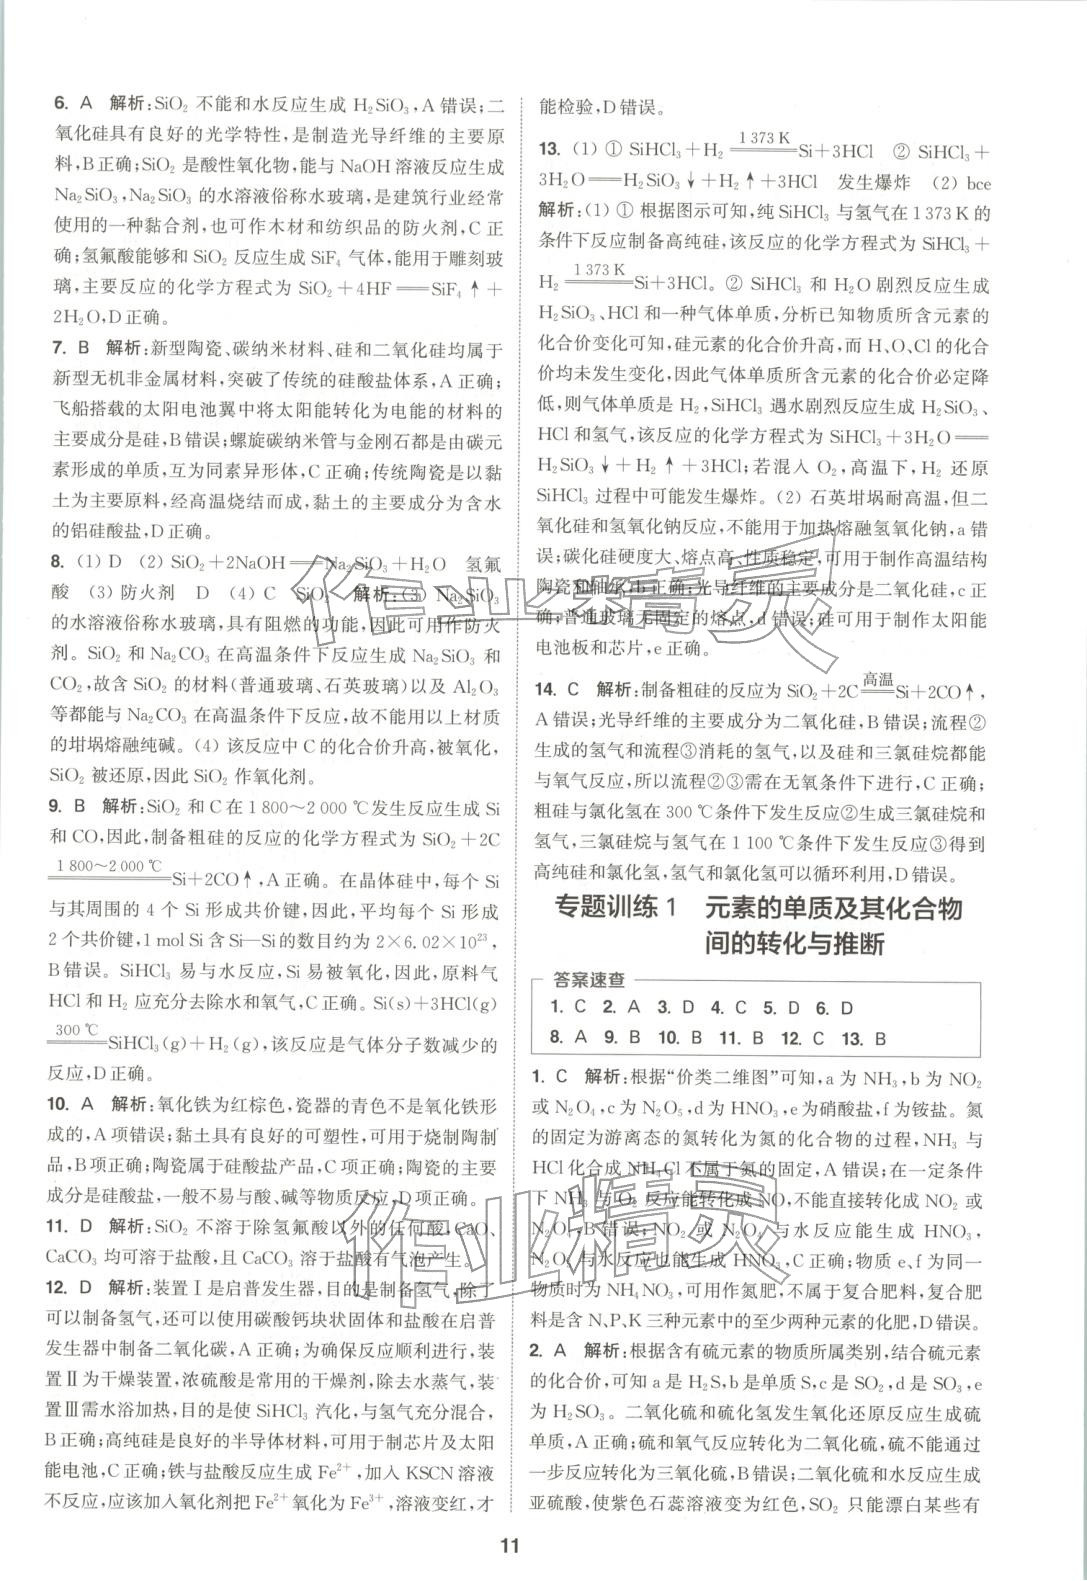 6. A 解析:SiO₂ 不能和水反应生成 H₂SiO₃,A 错误;二
氧化硅具有良好的光学特性,是制造光导纤维的主要原
料,B正确;SiO₂ 是酸性氧化物,能与 NaOH 溶液反应生成
Na₂SiO₃,Na₂SiO₃ 的水溶液俗称水玻璃,是建筑行业经常
使用的一种黏合剂,也可作木材和纺织品的防火剂,C 正
确;氢氟酸能够和 SiO₂ 反应生成 SiF₄ 气体,能用于雕刻玻
璃,主要反应的化学方程式为 SiO₂+4HF══SiF₄↑+
2H₂O,D正确。
7. B 解析:新型陶瓷、碳纳米材料、硅和二氧化硅均属于
新型无机非金属材料,突破了传统的硅酸盐体系,A 正确;
飞船搭载的太阳电池翼中将太阳能转化为电能的材料的
主要成分是硅,B错误;螺旋碳纳米管与金刚石都是由碳元
素形成的单质,互为同素异形体,C 正确;传统陶瓷是以黏
土为主要原料,经高温烧结而成,黏土的主要成分为含水
的铝硅酸盐,D 正确。
8. (1) D (2) SiO₂+2NaOH══Na₂SiO₃+H₂O 氢氟
酸 (3) 防火剂 D (4) C SiO₂ 解析:(3) Na₂SiO₃
的水溶液俗称水玻璃,具有阻燃的功能,因此可用作防火
剂。SiO₂ 和 Na₂CO₃ 在高温条件下反应生成 Na₂SiO₃ 和
CO₂,故含 SiO₂ 的材料(普通玻璃、石英玻璃)以及 Al₂O₃
等都能与 Na₂CO₃ 在高温条件下反应,故不能用以上材质
的坩埚熔融纯碱。(4) 该反应中 C 的化合价升高,被氧化,
SiO₂ 被还原,因此 SiO₂ 作氧化剂。
9. B 解析:SiO₂ 和 C 在 1 800~2 000 ℃发生反应生成 Si
和 CO,因此,制备粗硅的反应的化学方程式为 SiO₂+2C
1 800~2 000 ℃
══Si+2CO↑,A 正确。在晶体硅中,每个 Si
与其周围的 4 个 Si 形成共价键,因此,平均每个 Si 形成
2 个共价键,1 mol Si 含 Si—Si的数目约为 2×6.02×10²³,
B错误。SiHCl₃ 易与水反应,Si 易被氧化,因此,原料气
HCl 和 H₂ 应充分去除水和氧气,C 正确。Si(s)+3HCl(g)
300 ℃
══SiHCl₃(g)+H₂(g),该反应是气体分子数减少的
反应,D 正确。
10. A 解析:氧化铁为红棕色,瓷器的青色不是氧化铁形
成的,A 项错误;黏土具有良好的可塑性,可用于烧制陶制
品,B项正确;陶瓷属于硅酸盐产品,C 项正确;陶瓷的主要
成分是硅酸盐,一般不易与酸、碱等物质反应,D 项正确。
11. D 解析:SiO₂ 不溶于除氢氟酸以外的任何酸,CaO、
CaCO₃ 均可溶于盐酸,且 CaCO₃ 溶于盐酸有气泡产生。
12. D 解析:装置Ⅰ是启普发生器,目的是制备氢气,除了
可以制备氢气,还可以使用碳酸钙块状固体和盐酸在启普
发生器中制备二氧化碳,A 正确;为确保反应顺利进行,装
置Ⅱ为干燥装置,浓硫酸是常用的干燥剂,除去水蒸气,装
置Ⅲ需水浴加热,目的是使 SiHCl₃ 汽化,与氢气充分混合,
B正确;高纯硅是良好的半导体材料,可用于制芯片及太阳
能电池,C 正确;铁与盐酸反应生成 Fe²⁺,加入 KSCN 溶液
不反应,应该加入氧化剂把 Fe²⁺氧化为 Fe³⁺,溶液变红,才
能检验,D 错误。
13. (1) ① SiHCl₃+H₂ ══(1 373 K) Si+3HCl ② SiHCl₃+
3H₂O══H₂SiO₃↓+H₂↑+3HCl 发生爆炸 (2) bce
解析:(1) ① 根据图示可知,纯 SiHCl₃ 与氢气在 1 373 K 的
条件下反应制备高纯硅,该反应的化学方程式为 SiHCl₃+
H₂ ══(1 373 K) Si+3HCl。② SiHCl₃ 和 H₂O 剧烈反应生成
H₂SiO₃、HCl 和一种气体单质,分析已知物质所含元素的
化合价变化可知,硅元素的化合价升高,而 H、O、Cl 的化合
价均未发生变化,因此气体单质所含元素的化合价必定降
低,则气体单质是 H₂,SiHCl₃ 遇水剧烈反应生成 H₂SiO₃、
HCl 和氢气,该反应的化学方程式为 SiHCl₃+3H₂O══
H₂SiO₃↓+H₂↑+3HCl;若混入 O₂,高温下,H₂ 还原
SiHCl₃ 过程中可能发生爆炸。(2) 石英坩埚耐高温,但二
氧化硅和氢氧化钠反应,不能用于加热熔融氢氧化钠,a 错
误;碳化硅硬度大、熔点高、性质稳定,可用于制作高温结构
陶瓷和轴承,b 正确;光导纤维的主要成分是二氧化硅,c 正
确;普通玻璃无固定的熔点,d 错误;硅可用于制作太阳能
电池板和芯片,e 正确。
14. C 解析:制备粗硅的反应为 SiO₂+2C ══(高温) Si+2CO↑,
A 错误;光导纤维的主要成分为二氧化硅,B 错误;流程②
生成的氢气和流程③消耗的氢气,以及硅和三氯硅烷都能
与氧气反应,所以流程②③需在无氧条件下进行,C 正确;
粗硅与氯化氢在 300 ℃条件下发生反应②生成三氯硅烷和
氢气,三氯硅烷与氢气在 1 100 ℃条件下发生反应③得到
高纯硅和氯化氢,氢气和氯化氢可以循环利用,D 错误。
专题训练 1 元素的单质及其化合物
间的转化与推断
答案速查
1. C 2. A 3. D 4. C 5. D 6. D
8. A 9. B 10. B 11. B 12. C 13. B
1. C 解析:根据“价类二维图”可知,a 为 NH₃,b 为 NO₂
或 N₂O₄,c 为 N₂O₅,d 为 HNO₃,e 为硝酸盐,f 为铵盐。氮
的固定为游离态的氮转化为氮的化合物的过程,NH₃ 与
HCl 化合成 NH₄Cl 不属于氮的固定,A 错误;在一定条件
下 NH₃ 与 O₂ 反应能转化成 NO,不能直接转化成 NO₂ 或
N₂O₄,B 错误;NO₂ 或 N₂O₄ 与水反应能生成 HNO₃,
N₂O₅ 与水反应也能生成 HNO₃,C 正确;物质 e、f 为同一
物质时为 NH₄NO₃,可用作氮肥,不属于复合肥料,复合肥
料是含 N、P、K 三种元素中的至少两种元素的化肥,D 错误。
2. A 解析:根据含有硫元素的物质所属类别,结合硫元素
的化合价,可知 a 是 H₂S,b 是单质 S,c 是 SO₂,d 是 SO₃,e
为 H₂SO₃。二氧化硫和硫化氢发生氧化还原反应生成硫
单质,A 正确;硫和氧气反应转化为二氧化硫,硫不能通过
一步反应转化为三氧化硫,B 错误;二氧化硫和水反应生成
亚硫酸,使紫色石蕊溶液变为红色,SO₂ 只能漂白某些有
11
作业精灵
作业精灵